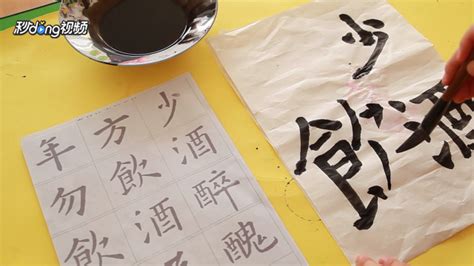 秒dong视频
年方少
勿飲酒
飲酒醉
醜
少
飲酒